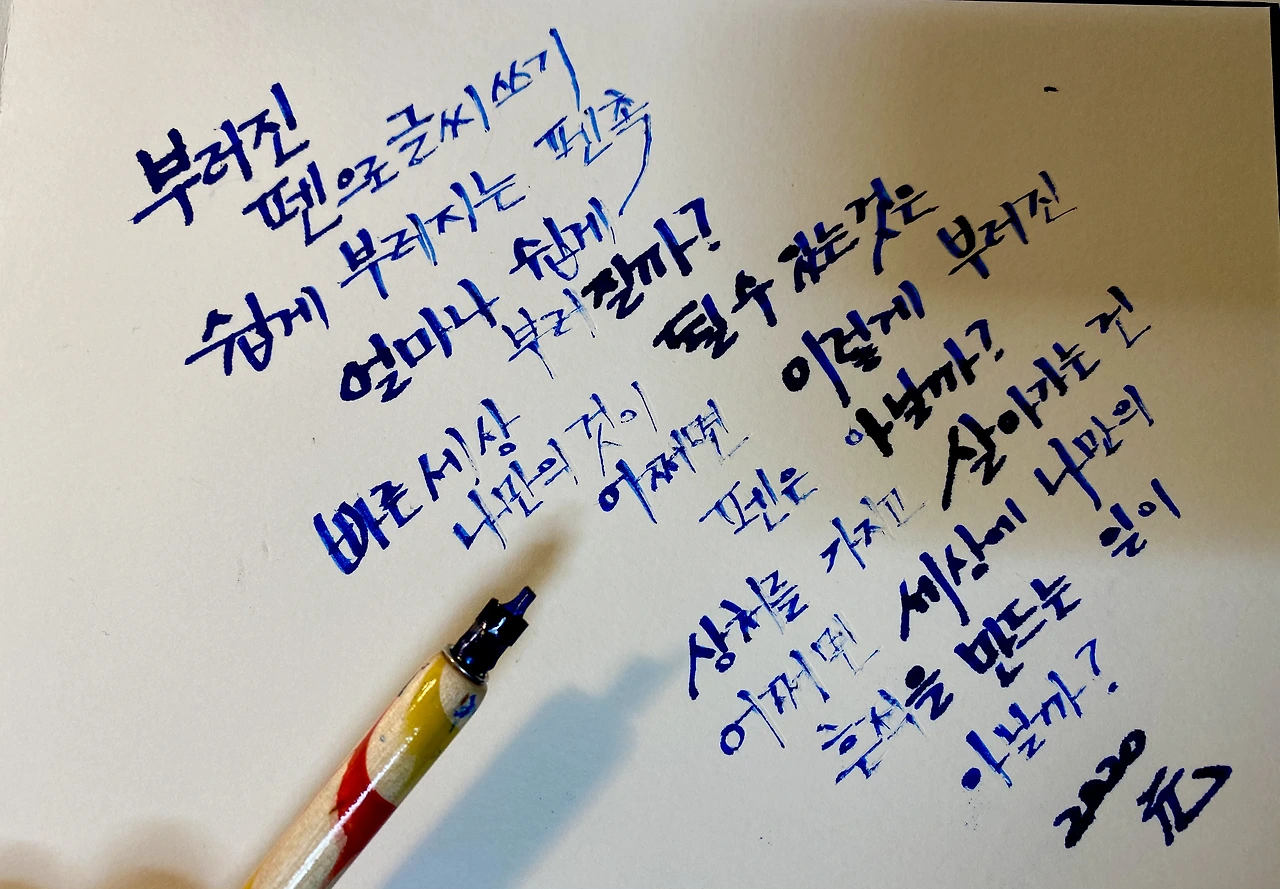 부러진
펜으로 글씨 쓰기
쉽게 부러지는 펜촉
얼마나 쉽게
부러질까?
빠른 세상
나만의 것이
될 수 있는 것은
어쩌면 이렇게 부러진
펜은 아닐까?
상처를 가지고 살아가는 건
어쩌면 세상에 나만의
흔적을 만드는 일이
아닐까?
2020